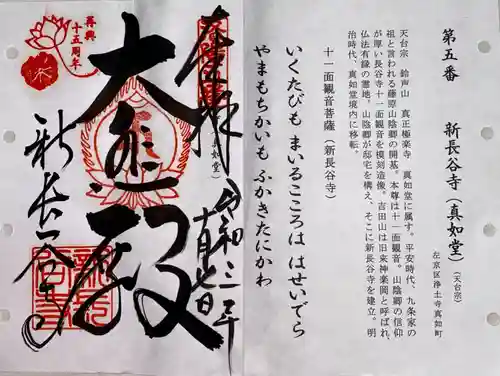 第五番 新長谷寺（真如堂）（天台宗）
左京区浄土寺真如町
天台宗 鈴声山 真正極楽寺 真如堂に属す。平安時代、九条家の
祖と言われる藤原山陰卿の開基。本尊は十一面観音。山陰卿の信仰
が厚い長谷寺十一面観音を模刻造像。吉田山は旧来神楽岡と呼ばれ、
仏法有縁の霊地。山陰卿が邸宅を構え、そこに新長谷寺を建立。明
治時代、真如堂境内に移転。
十一面観音菩薩（新長谷寺）
いくたびも まいるこころは はせいでら
やまもちかいも ふかきたにかわ
奉拝
真如堂）
令和三年
十一月七日
大悲殿
新長谷寺
再興
十五周年